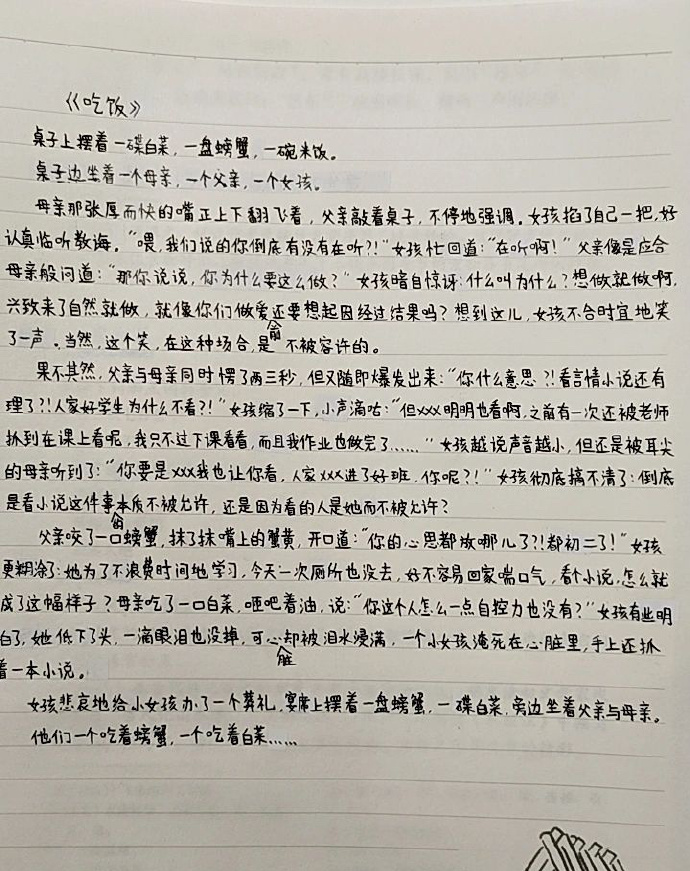 《吃饭》
桌子上摆着一碟白菜，一盘螃蟹，一碗米饭。
桌子边坐着一个母亲，一个父亲，一个女孩。
母亲那张厚而快的嘴正上下翻飞着，父亲敲着桌子，不停地强调。女孩掐了自己一把，好
认真临听教诲。“喂，我们说的你倒底有没有在听?!”女孩忙回道：“在听啊！”父亲像是应合
母亲般问道：“那你说说，你为什么要这么做？”女孩暗自惊讶：什么叫为什么？想做就做啊，
兴致来了自然就做，就像你们做爱还要想起因经过结果吗？想到这儿，女孩不合时宜地笑
了一声。当然，这个笑，在这种场合，是不被容许的。
果不其然，父亲与母亲同时愣了两三秒，但又随即爆发出来：“你什么意思?!看言情小说还有
理了?!人家好学生为什么不看?!”女孩缩了一下，小声滴咕：“但xxx明明也看啊，之前有一次还被老师
抓到在课上看呢，我只不过下课看看，而且我作业也做完了……”女孩越说声音越小，但还是被耳尖
的母亲听到了：“你要是xxx我也让你看，人家xxx进了好班，你呢?!”女孩彻底搞不清了：倒底
是看小说这件事的本质不被允许，还是因为看的人是她而不被允许？
父亲咬了一口螃蟹，抹了抹嘴上的蟹黄，开口道：“你的心思都放哪儿了?!都初二了！”女孩
更糊涂了：她为了不浪费时间地学习，今天一次厕所也没去，好不容易回家喘口气，看个小说，怎么就
成了这幅样子？母亲吃了一口白菜，咂吧着油，说：“你这个人怎么一点自控力也没有？”女孩有些明
白了，她低下了头，一滴眼泪也没掉，可心脏却被泪水浸满，一个小女孩淹死在心脏里，手上还抓
着一本小说。
女孩悲哀地给小女孩办了一个葬礼，宴席上摆着一盘螃蟹，一碟白菜，旁边坐着父亲与母亲。
他们一个吃着螃蟹，一个吃着白菜……